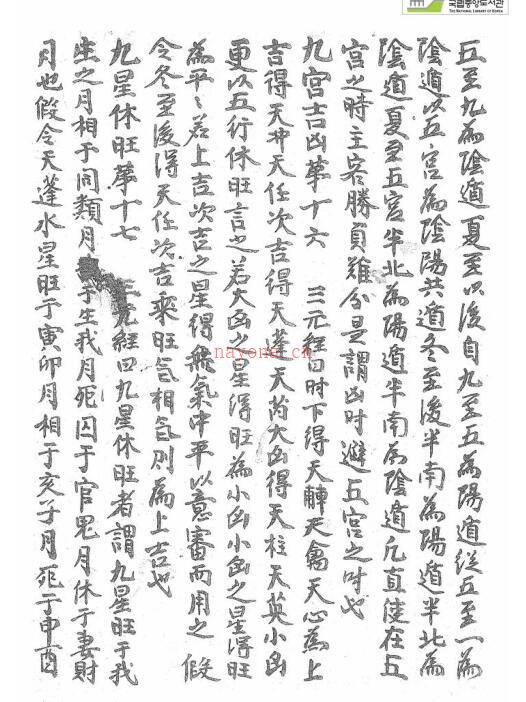 국립중앙도서관
THE NATIONAL LIBRARY OF KOREA
五至九為陰遁夏至以後自九至五為陽遁從五至一為
陰遁以五宮為陰陽共遁冬至後半南為陽遁半北為
陰遁夏至五宮半北為陽遁半南為陰遁凡直使在五
宮之時主客勝負難分是謂凶時避五宮之时也
九宮吉凶第十六 三元經曰时下得天輔天禽天心為上
吉得天冲天任次吉得天蓬天芮大凶得天柱天英小凶
更以五行休旺言之若大凶之星得旺為小凶小凶之星得旺
為平〻若上吉次吉之星得無氣中平以意審而用之 假
令冬至後得天任次吉乘旺氣相氣則為上吉也
九星休旺第十七 三元經曰九星休旺者謂九星旺于我
生之月相于同類月 于生我月死囚于官鬼月休于妻財
月也假令天蓬水星旺于寅卯月相于亥子月死于申酉
nayona.cn